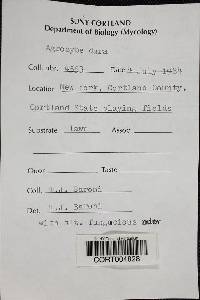 SUNY CORTLAND
Department of Biology (Mycology)
Agrocybe dura
Coll. no. 4363 Date July 1984
Location New York, Cortland County,
Cortland State playing fields
Substrate lawn Assoc
Odor Taste
Coll. T.J. Baroni
Det. T.J. Baroni
with alt. fungicious odor
CORT004828